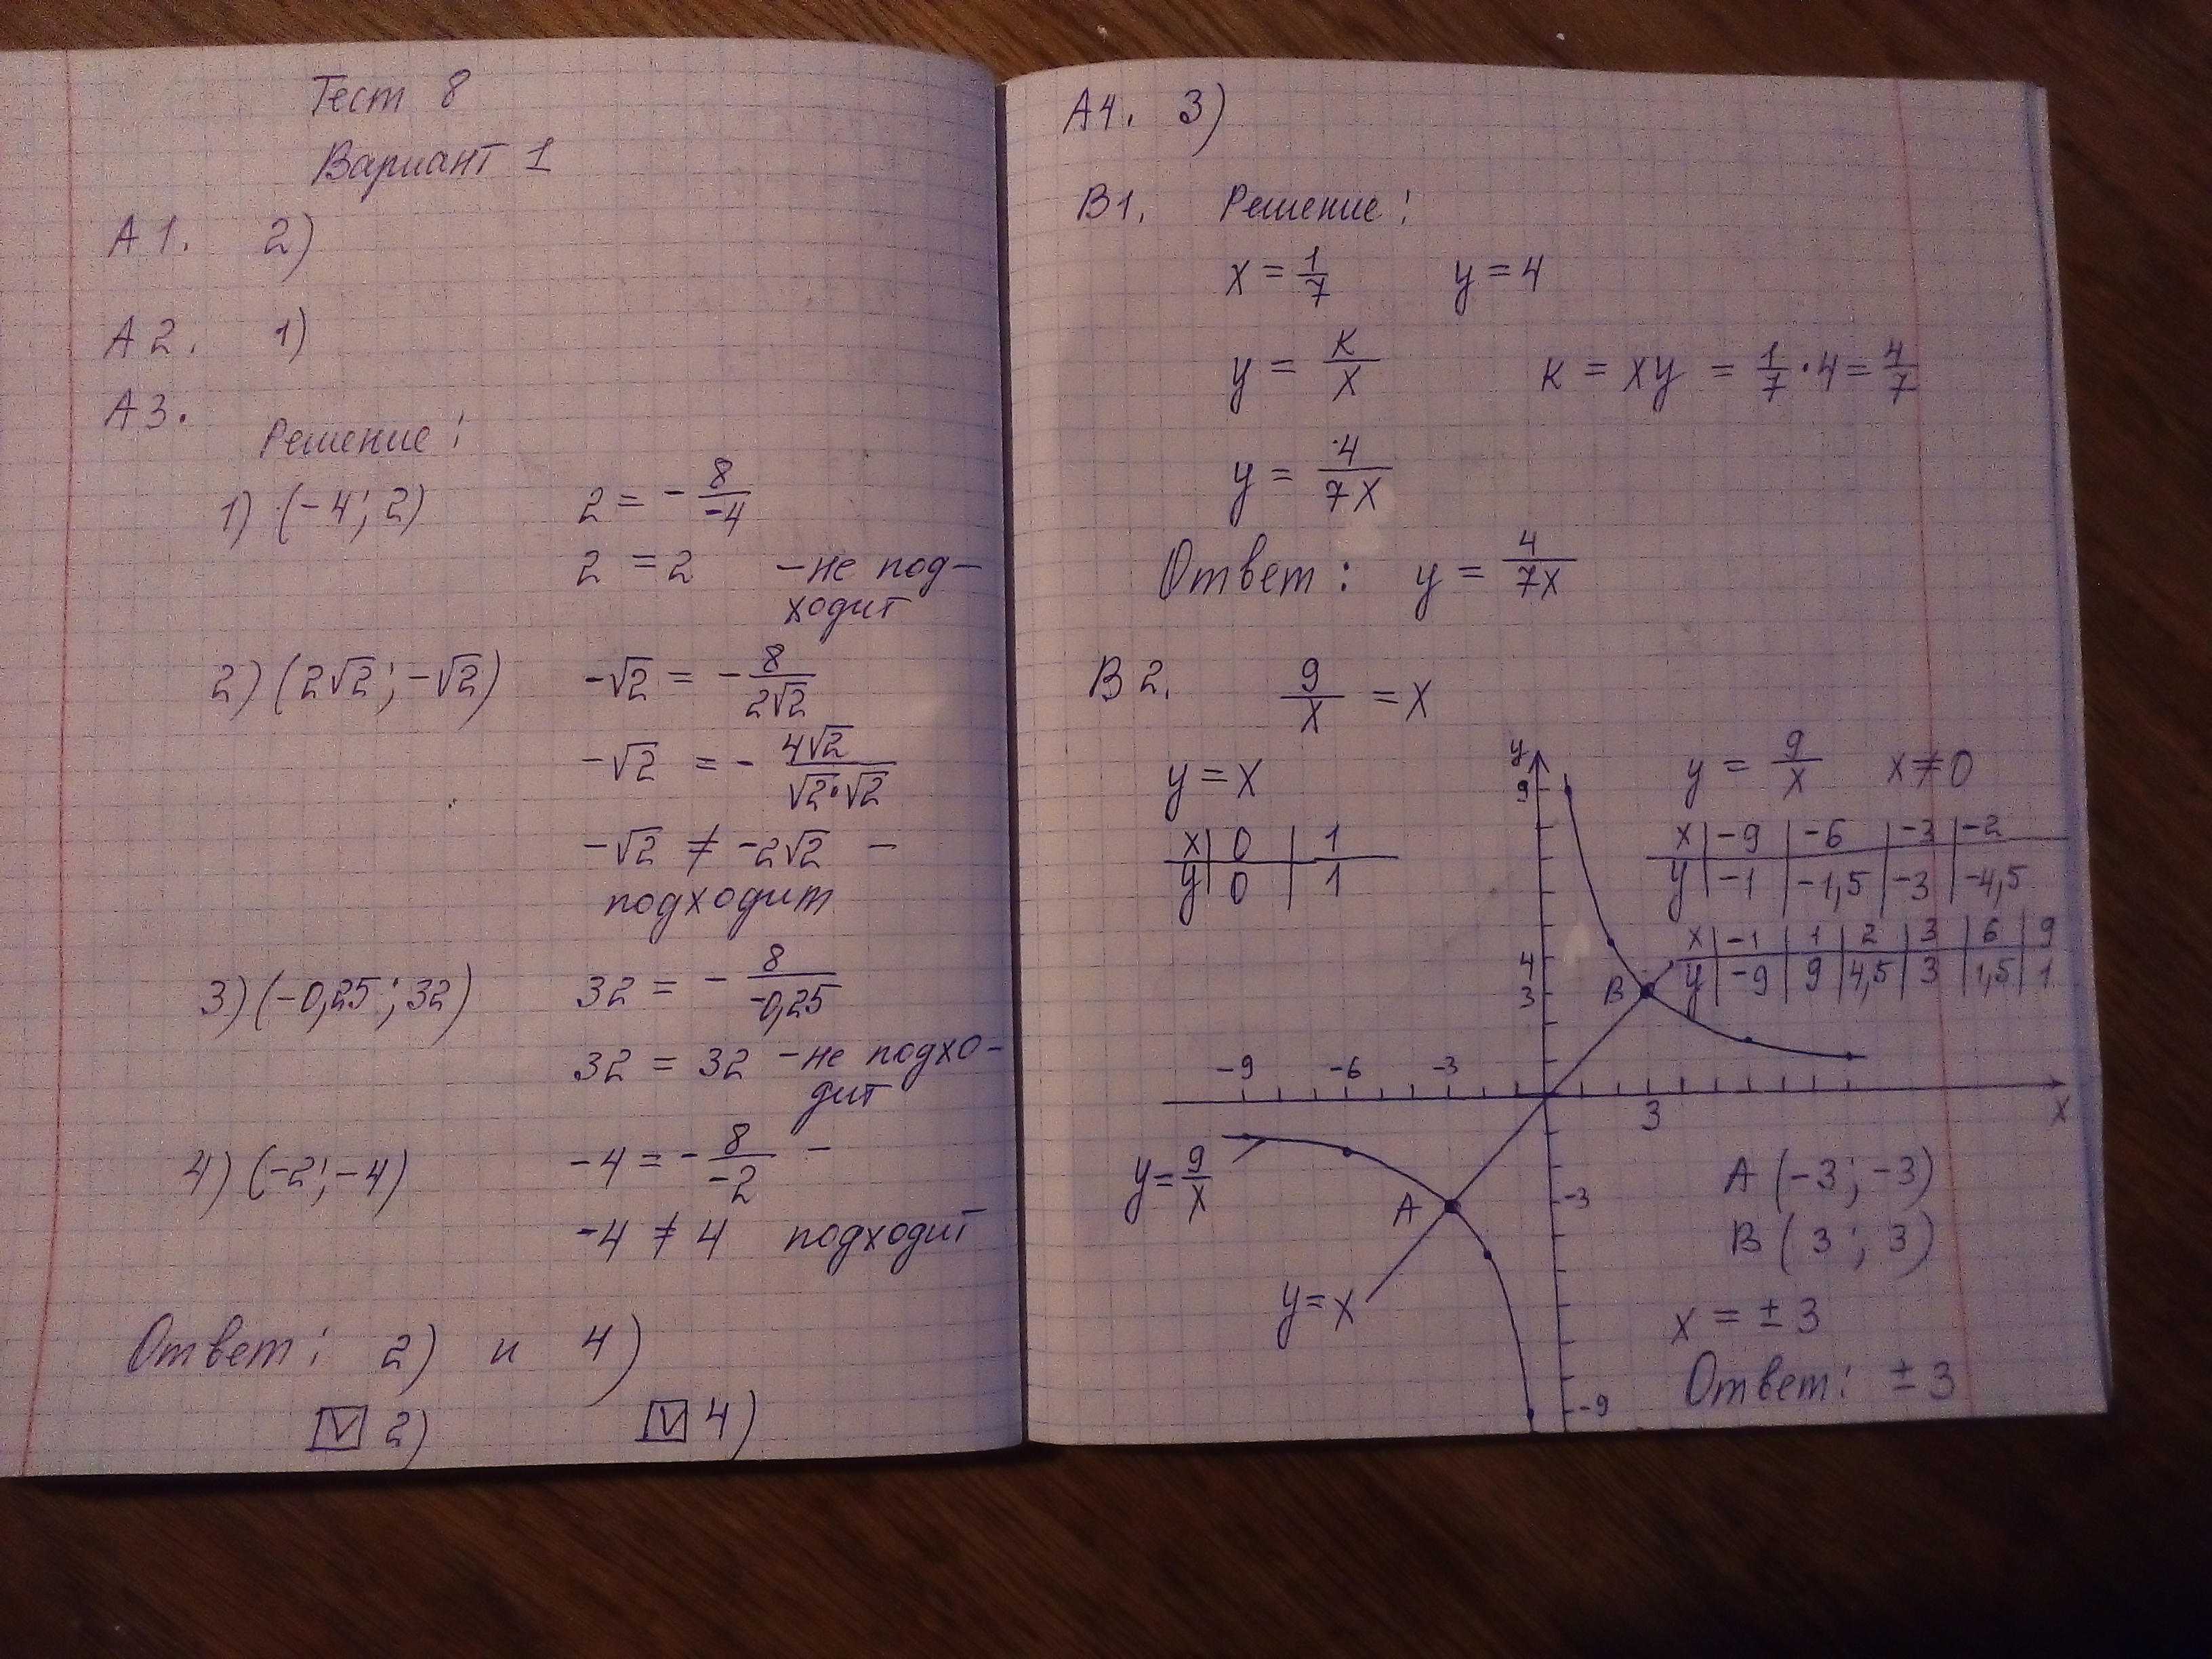 Тест 8
Вариант 1
А1. 2)
А2. 1)
А3.
Решение:
1) (-4; 2) 2 = -8/-4
2 = 2 - не под-
ходит
2) (2√2; -√2) -√2 = -8/2√2
-√2 = -4√2/√2·√2
-√2 ≠ -2√2 -
подходит
3) (-0,25; 32) 32 = -8/-0,25
32 = 32 - не подхо-
дит
4) (-2; -4) -4 = -8/-2 -
-4 ≠ 4 подходит
Ответ: 2) и 4)
☑ 2) ☑ 4)
А4. 3)
В1. Решение:
x = 1/7 y = 4
y = к/x к = xy = 1/7 · 4 = 4/7
y = 4/7x
Ответ: y = 4/7x
В2. 9/x = x
y = x
x 0 1
y 0 1
y = 9/x x ≠ 0
x -9 -6 -3 -2
y -1 -1,5 -3 -4,5
x -1 1 2 3 6 9
y -9 9 4,5 3 1,5 1
y
9
4
3
B
-9 -6 -3
3
x
y = 9/x
A
-3
y = x
-9
A (-3; -3)
B (3; 3)
x = ± 3
Ответ: ± 3